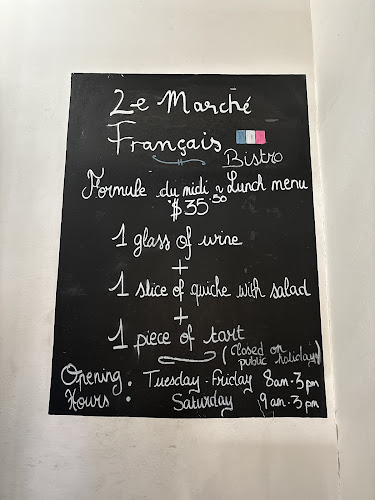 Le Marché
Français
Bistro
Formule du midi ~ Lunch menu
$35.50
1 glass of wine
+
1 slice of quiche with salad
+
1 piece of tart
(Closed on
public holidays)
Opening Hours: Tuesday - Friday 8am-3pm
Saturday 9am-3pm